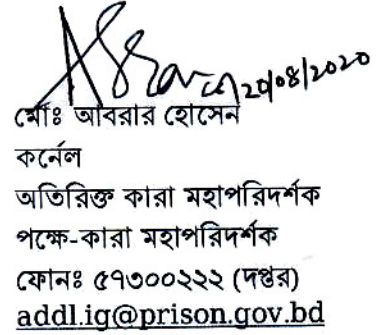 ২০/০৪/২০২০
মোঃ আবরার হোসেন
কর্নেল
অতিরিক্ত কারা মহাপরিদর্শক
পক্ষে-কারা মহাপরিদর্শক
ফোনঃ ৫৭৩০০২২২ (দপ্তর)
addl.ig@prison.gov.bd